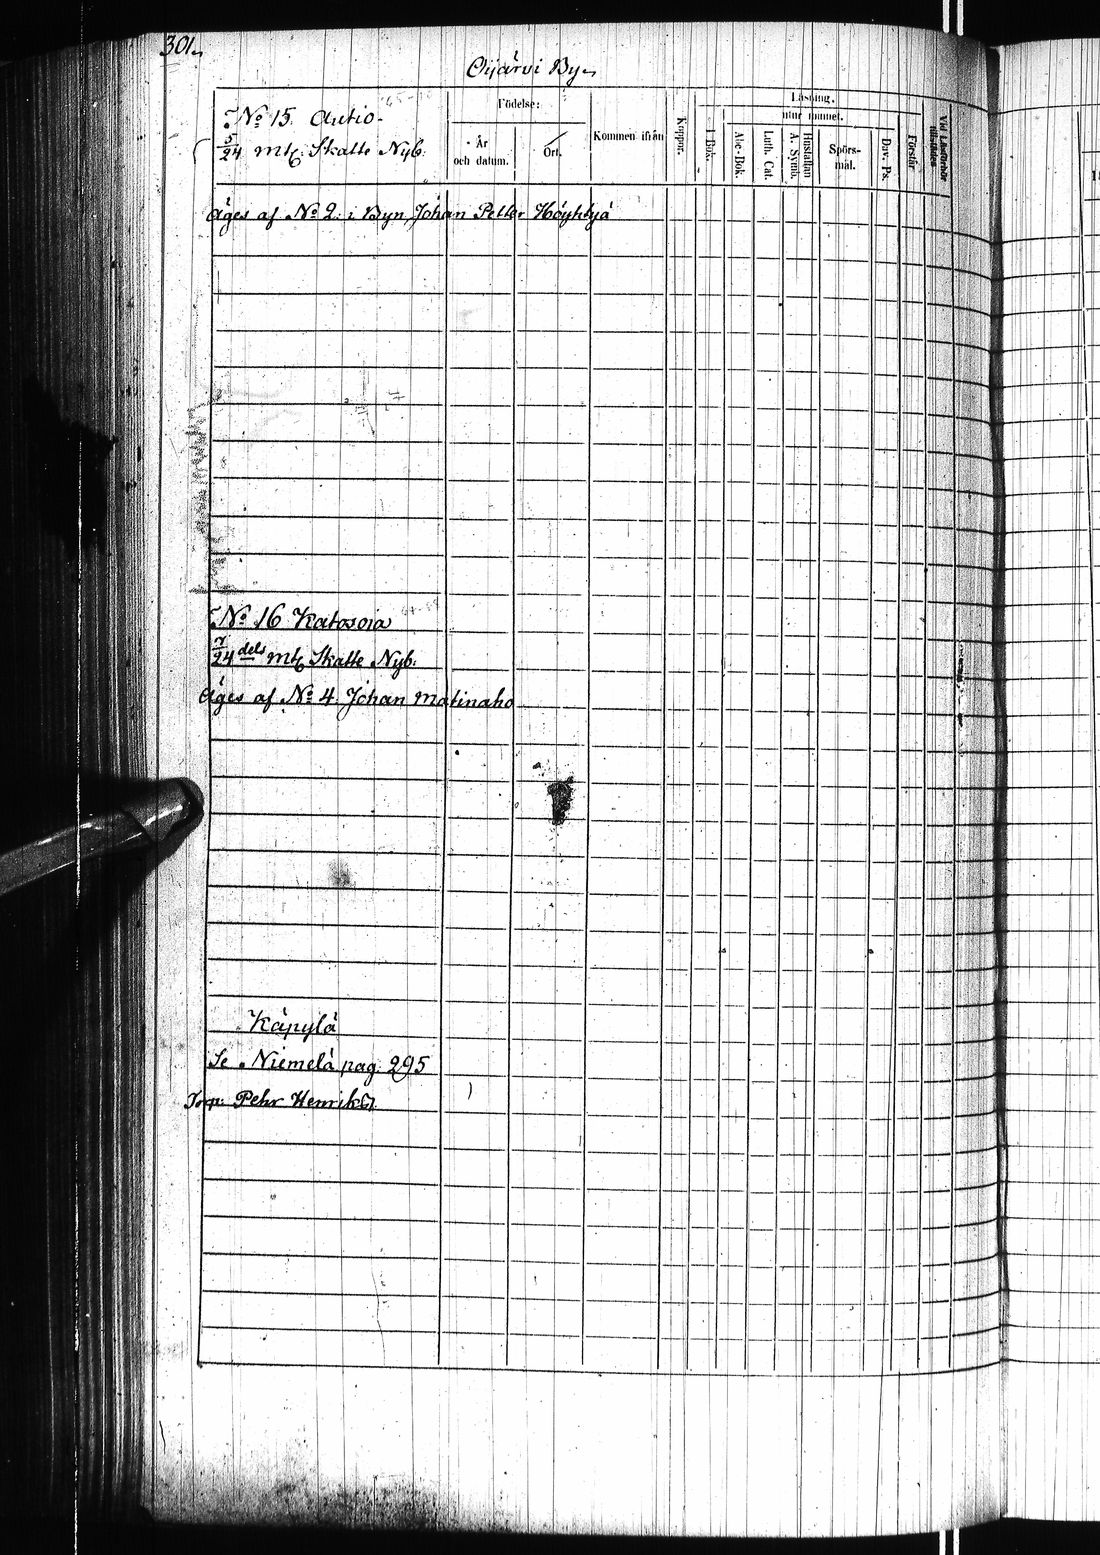 301.
Oijärvi By.
No 15. Autio.
5/24 mtl Skatte Nyb.
Födelse:
År
och datum.
Ort.
Kommen ifrån
Koppor.
Läsning,
utur minnet.
I Bok.
Abc-Bok.
Luth. Cat.
Hustaflan
A. Symb.
Spörs-
mål.
Dav. Ps.
Förstår
Vid Läsförhör
Äges af No 2. i Byn Johan Petter Höyhtyä
No 16 Katosoja
7/24 dels mtl Skatte Nyb.
Äges af No 4 Johan Matinaho
Käpylä
Se Niemelä pag. 295
Torp. Pehr Henriks